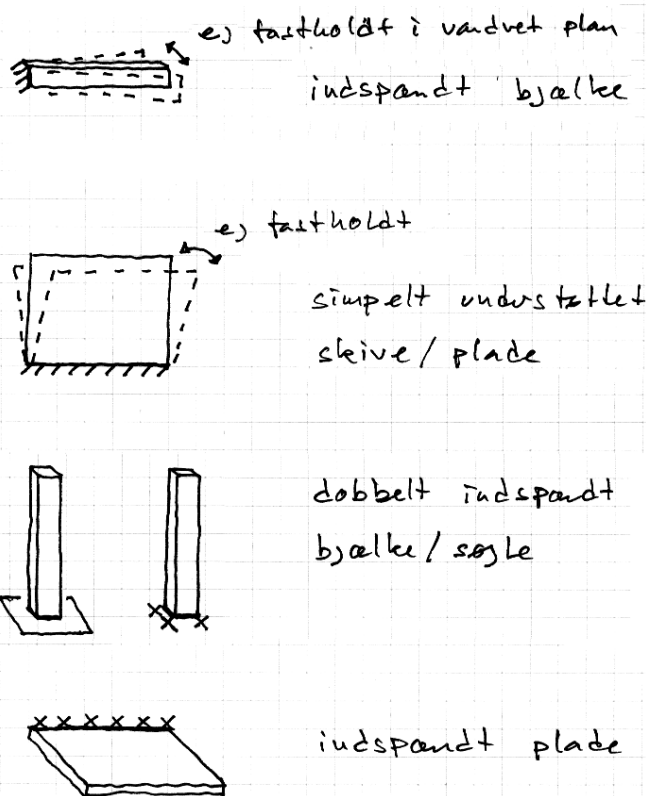 ej fastholdt i vandret plan
indspændt bjælke
ej fastholdt
simpelt understøttet
skive / plade
dobbelt indspændt
bjælke / søjle
indspændt plade